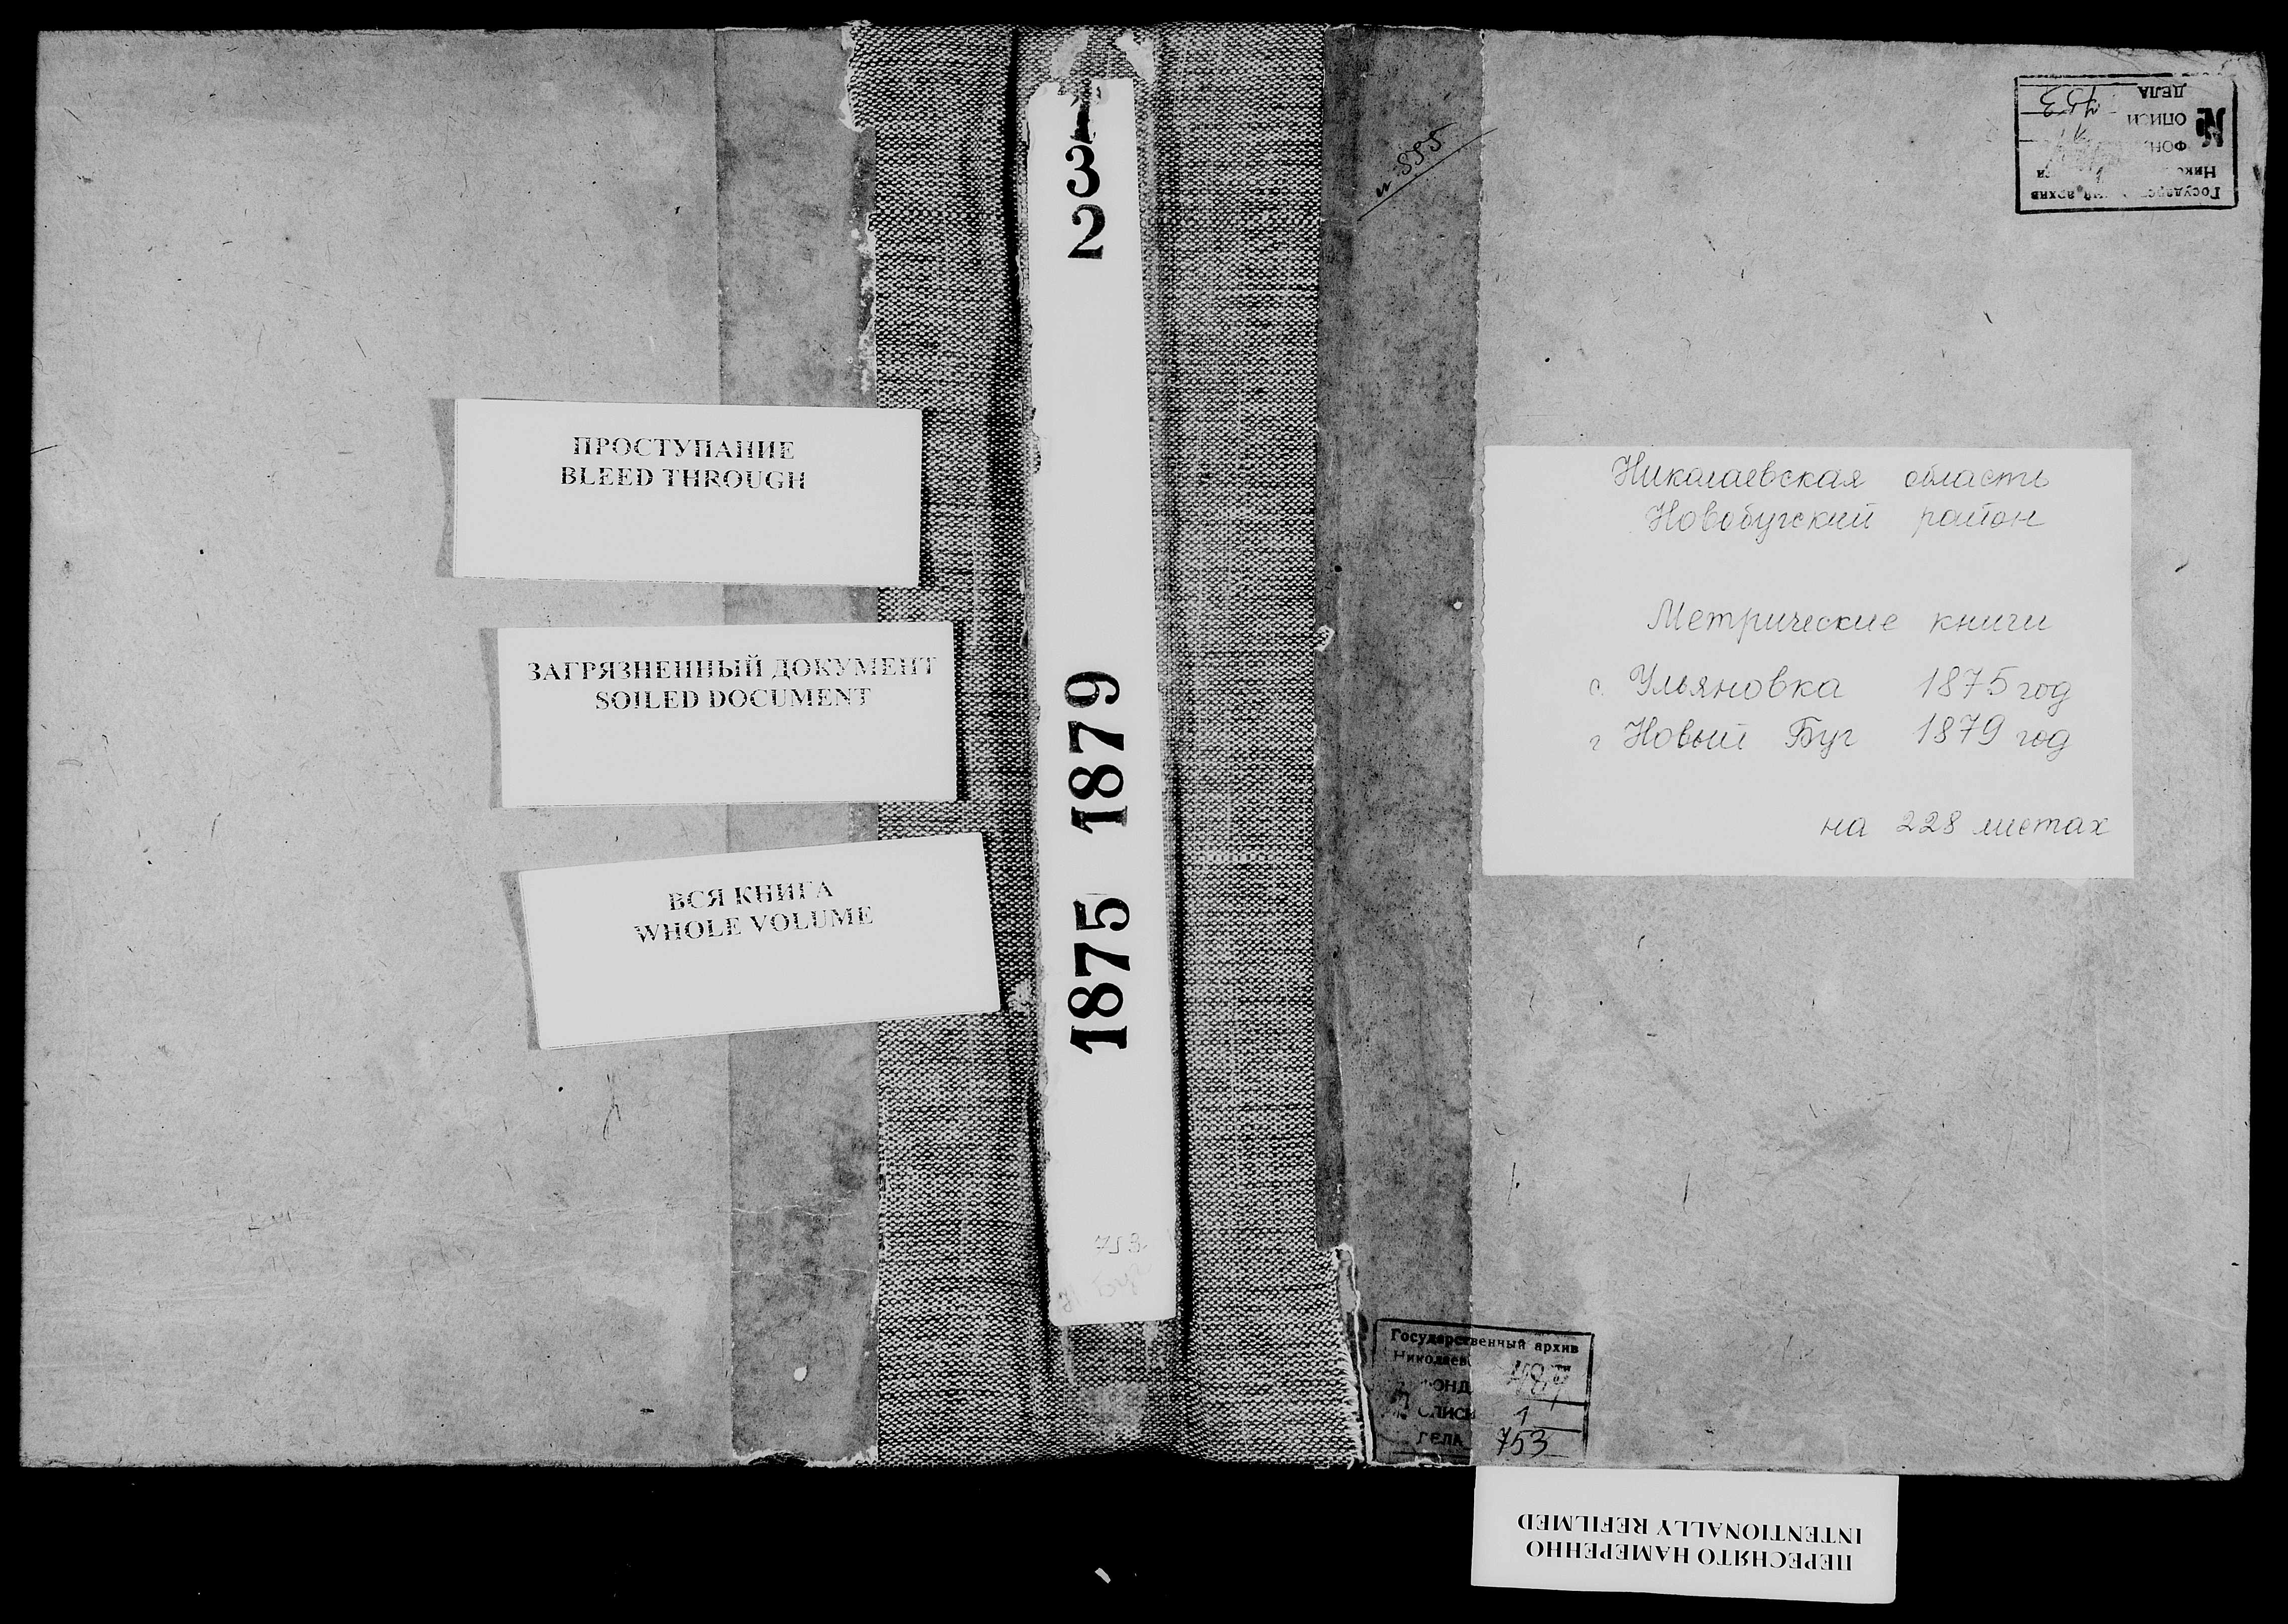 ПРОСТУПАНИЕ
BLEED THROUGH
ЗАГРЯЗНЕННЫЙ ДОКУМЕНТ
SOILED DOCUMENT
ВСЯ КНИГА
WHOLE VOLUME
1875 1879 23
753
Буг
и 555
Государст й архив
Нико
ФОН
№ ОПИСИ
ДЕЛА 753
Николаевская область
Новобугский район
Метрические книги
с. Ульяновка 1875 год
г Новый Буг 1879 год
на 228 листах
Государственный архив
Николаев
ОНД 484
ОПИСИ 1
ДЕЛА 753
ПЕРЕСНЯТО НАМЕРЕННО
INTENTIONALLY REFILMED